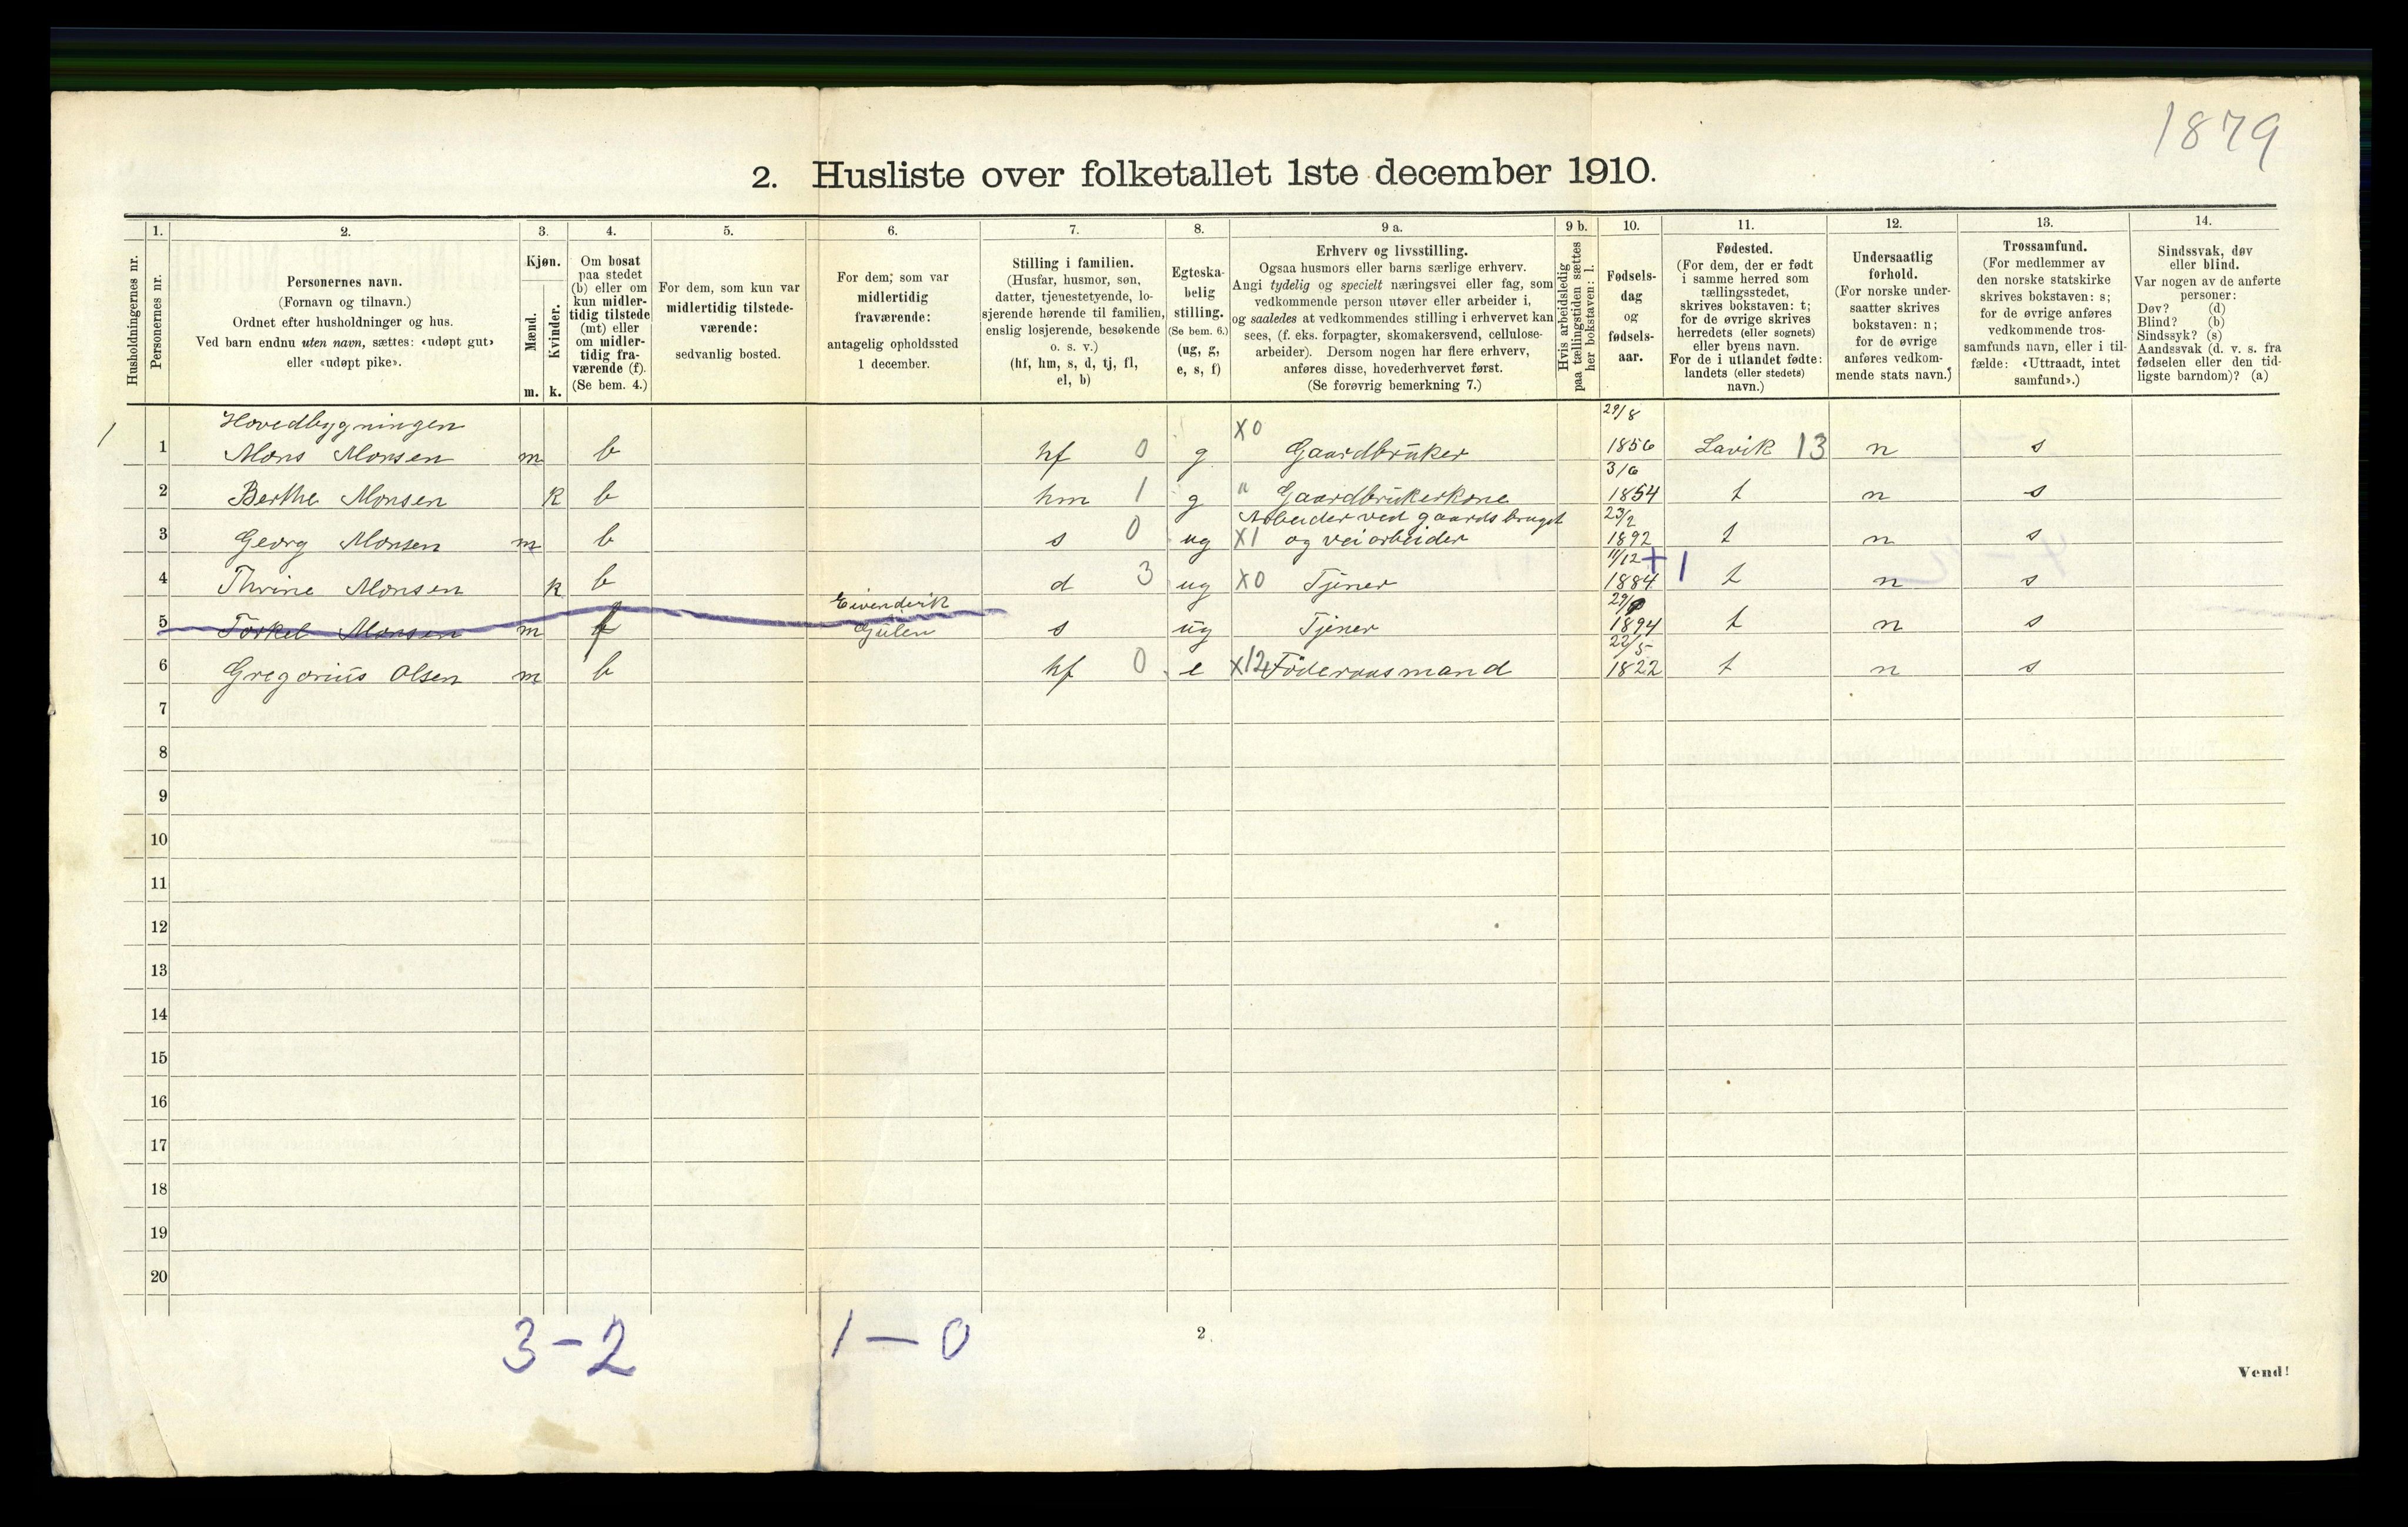 1879
2. Husliste over folketallet 1ste december 1910.
Husholdningernes nr.
1.
Personernes nr.
2.
Personernes navn.
(Fornavn og tilnavn.)
Ordnet efter husholdninger og hus.
Ved barn endnu uten navn, sættes: «udøpt gut»
eller «udøpt pike».
3.
Kjøn.
Mænd.
Kvinder.
m. k.
4.
Om bosat
paa stedet
(b) eller om
kun midler-
tidig tilstede
(mt) eller
om midler-
tidig fra-
værende (f).
(Se bem. 4.)
5.
For dem, som kun var
midlertidig tilstede-
værende:
sedvanlig bosted.
6.
For dem, som var
midlertidig
fraværende:
antagelig opholdssted
1 december.
7.
Stilling i familien.
(Husfar, husmor, søn,
datter, tjenestetyende, lo-
sjerende hørende til familien,
enslig losjerende, besøkende
o. s. v.)
(hf, hm, s, d, tj, fl,
el, b)
8.
Egteska-
belig
stilling.
(Se bem. 6.)
(ug, g,
e, s, f)
9 a.
Erhverv og livsstilling.
Ogsaa husmors eller barns særlige erhverv.
Angi tydelig og specielt næringsvei eller fag, som
vedkommende person utøver eller arbeider i,
og saaledes at vedkommendes stilling i erhvervet kan
sees, (f. eks. forpagter, skomakersvend, cellulose-
arbeider). Dersom nogen har flere erhverv,
anføres disse, hovederhvervet først.
(Se forøvrig bemerkning 7.)
9 b.
Hvis arbeidsledig
paa tællingstiden sættes
her bokstaven: l.
10.
Fødsels-
dag
og
fødsels-
aar.
11.
Fødested.
(For dem, der er født
i samme herred som
tællingsstedet,
skrives bokstaven: t;
for de øvrige skrives
herredets (eller sognets)
eller byens navn.
For de i utlandet fødte:
landets (eller stedets)
navn.)
12.
Undersaatlig
forhold.
(For norske under-
saatter skrives
bokstaven: n;
for de øvrige
anføres vedkom-
mende stats navn.)
13.
Trossamfund.
(For medlemmer av
den norske statskirke
skrives bokstaven: s;
for de øvrige anføres
vedkommende tros-
samfunds navn, eller i til-
fælde: «Uttraadt, intet
samfund».)
14.
Sindssvak, døv
eller blind.
Var nogen av de anførte
personer:
Døv? (d)
Blind? (b)
Sindssyk? (s)
Aandssvak (d. v. s. fra
fødselen eller den tid-
ligste barndom)? (a)
Hovedbygningen
1 1 Mons Monsen m b hf 0 g X0 Gaardbruker 29/8 1856 Lavik 13 n s
2 Berthe Monsen k b hm 1 g " Gaardbrukerkone 3/6 1854 t n s
Arbeider ved gaardsbruget
3 Georg Monsen m b s 0 ug X1 og veiarbeider 23/2 1892 t n s
4 Thrine Monsen k b d 3 ug X0 Tjener 11/12 1884 +1 t n s
Eivendvik
5 Torkel Monsen m f Gulen s ug Tjener 1894 t n s
6 Gregorius Olsen m b hf 0 e X12 Föderaasmand 22/5 1822 t n s
7
8
9
10
11
12
13
14
15
16
17
18
19
20
3-2 1-0
2
Vend!